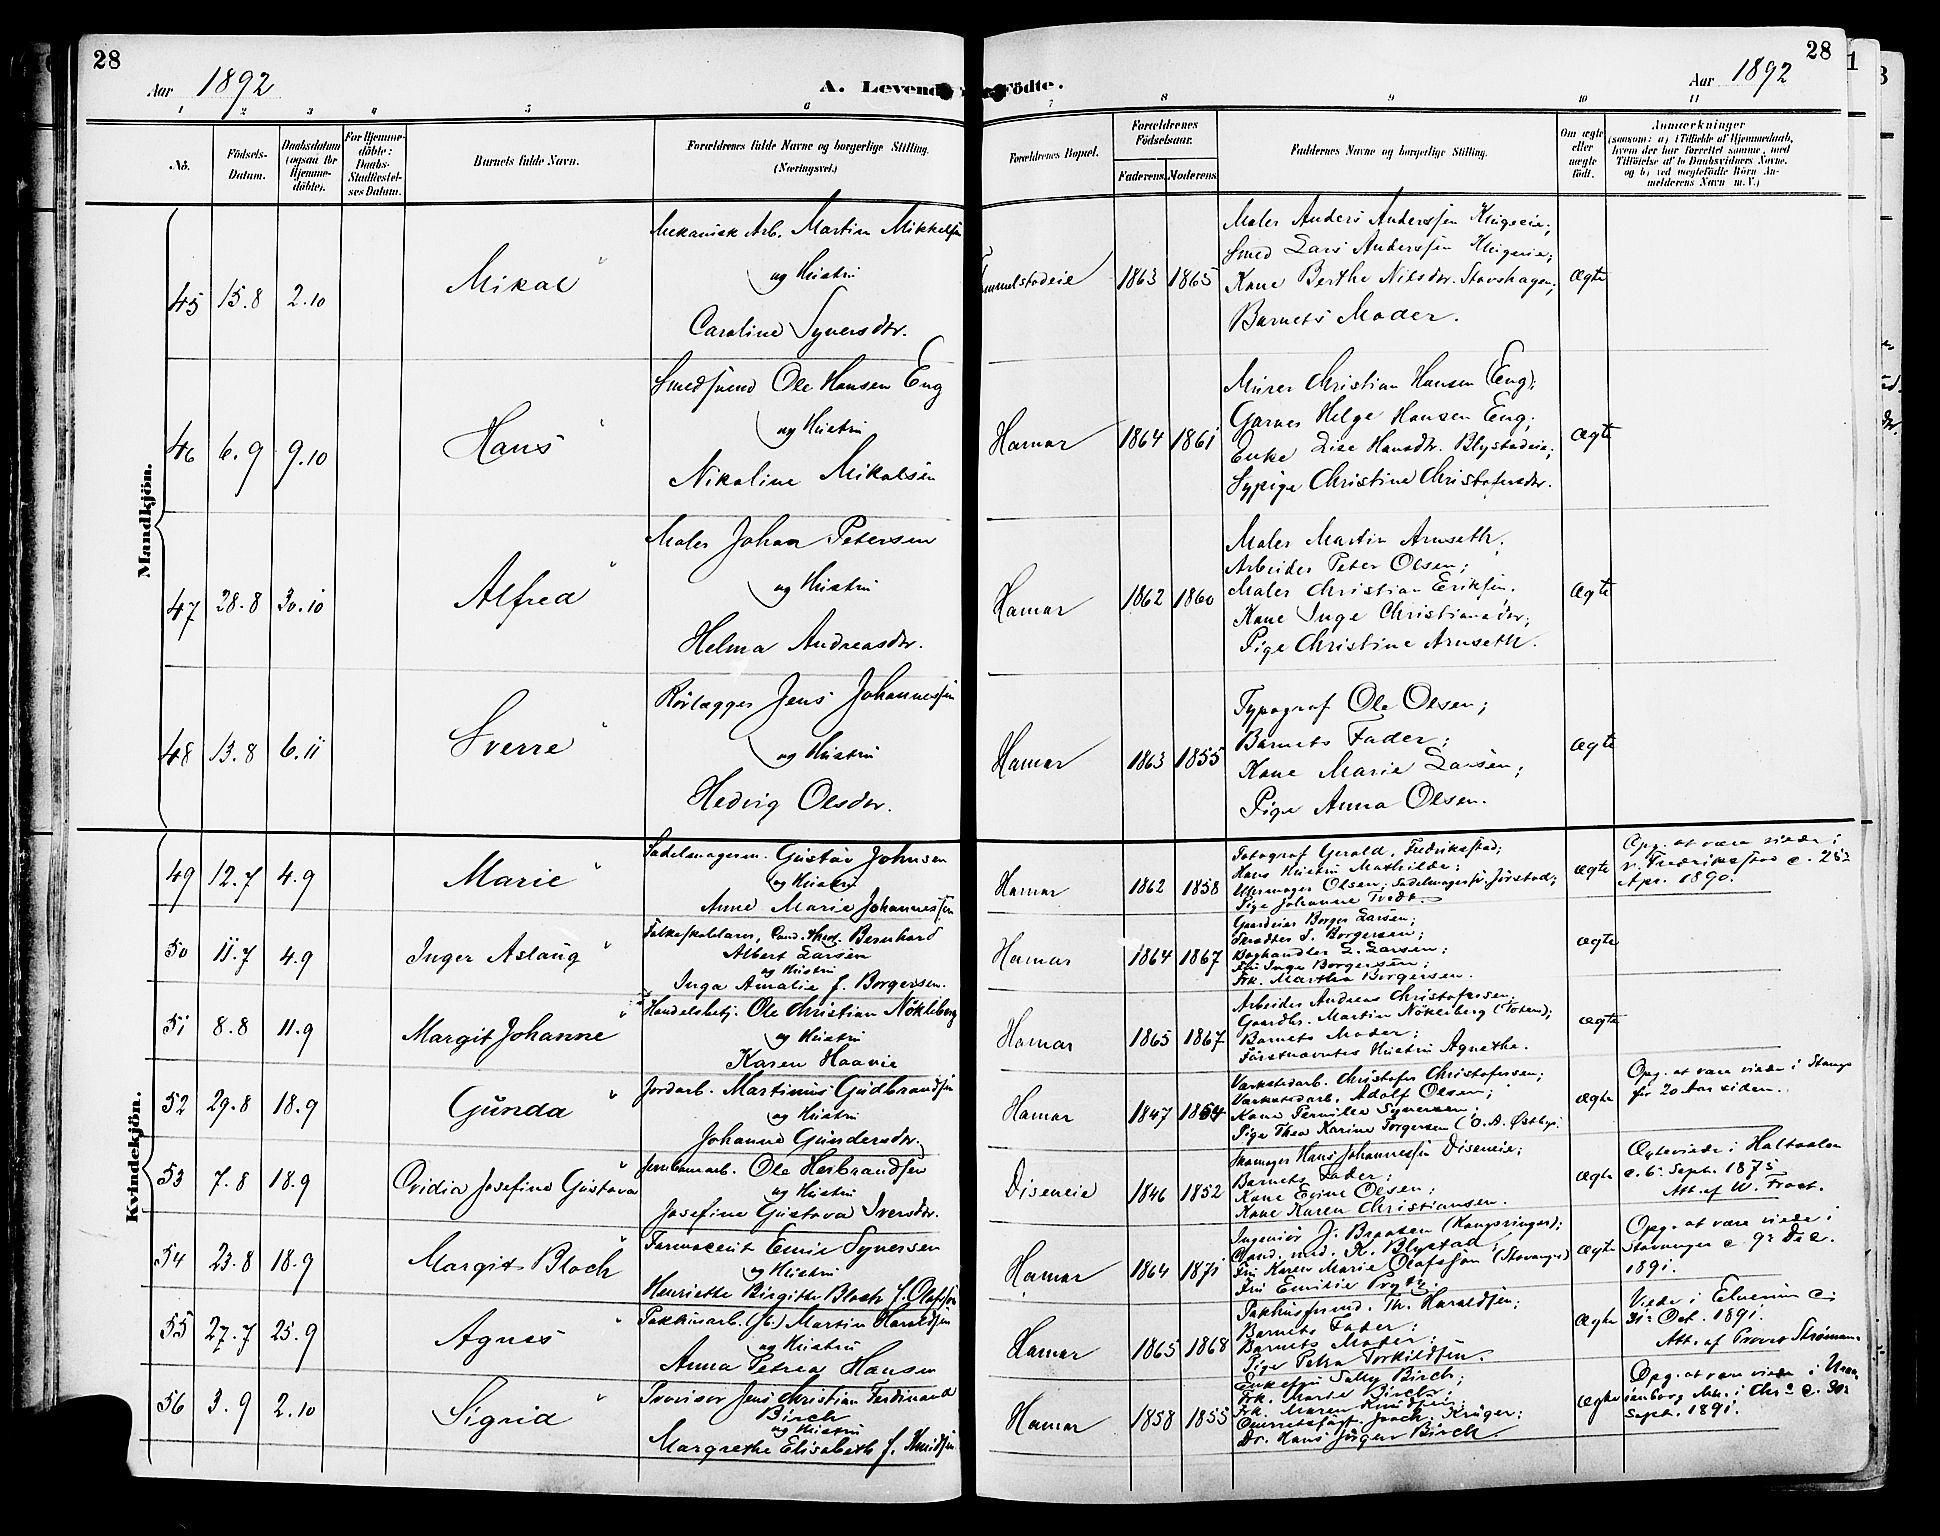 28
Aar 1892
A. Levende Födte.
Aar 1892
28
1 2 3 4 5 6 7 8 9 10 11
No.
Födsels-Datum.
Daabsdatum (ogsaa for Hjemme-döbte).
For Hjemme-döbte: Daabs-Stadfæstel-ses Datum.
Barnets fulde Navn.
Forældrenes fulde Navne og borgerlige Stilling.
(Næringsvei.)
Forældrenes Bopæl.
Forældrenes Födselsaar.
Faderens. Moderens.
Faddernes Navne og borgerlige Stilling.
Om ægte eller uægte født.
Anmærkninger
(saasom: a) i Tilfælde af Hjemmedaab, hvem der har forrettet samme, med Tilföielse af to Daabsvidners Navne. og b) ved uægtefödte Börn An-melderens Navn m. V.)
Mandkjön.
45 15.8 2.10 Mikal
Mekanisk Arb. Martin Mikkelsen
og Hustru
Caroline Syversdtr.
1863 1865
Maler Anders Anderssen Klingeie;
Smed Lars Anderssen Klingeie;
Kone Berthe Nilsdtr. Stavshagen;
Barnets Moder.
Ægte
46 6.9 9.10 Hans
Smedsvend Ole Hansen Eng
og Hustru
Nikoline Mikalsen
Hamar 1864 1861
Murer Christian Hansen (Eng);
Garver Helge Hansen Eng;
Enke Lise Hansdtr. Blystadeie;
Sypige Christine Christofersdtr.
Ægte
47 28.8 30.10 Alfred
Maler Johan Petersen
og Hustru
Helma Andreasdtr.
Hamar 1862 1860
Maler Martin Arnseth;
Arbeider Peter Olsen;
Maler Christian Eriksen;
Kone Inge Christiansdtr;
Pige Christine Arnseth.
Ægte
48 13.8 6.11 Sverre
Rørlægger Jens Johannessen
og Hustru
Hedvig Olsdtr.
Hamar 1863 1855
Typograf Ole Olsen;
Barnets Fader;
Kone Marie Larsen;
Pige Anna Olsen.
Ægte
Kvindekjön.
49 12.7 4.9 Marie
Sadelmagersv. Gustav Johnsen
og Hustru
Anne Marie Johannessen
Hamar 1862 1858
Fotograf Gerald, Fredrikstad;
Hans Hustru Mathilde;
Uhrmager Olsen; Sadelmagersv. Jørstad;
Pige Johanne Tvedt.
Ægte
Opg. at være viede i
v. Fredrikstad c. 28
Apr. 1890.
50 11.7 4.9 Inger Aslaug
Folkeskolelærer, Cand. theol. Bernhard
Albert Larsen
og Hustru
Inga Amalie f. Borgersen.
Hamar 1864 1867
Gaardeier Borger Larsen;
Skrædder S. Borgersen;
Boghandler L. Larsen;
Fru Inga Borgersen;
Frk. Martha Borgersen.
Ægte
51 8.8 11.9 Margit Johanne
Handelsbetj. Ole Christian Nökleberg
og Hustru
Karen Haavie
Hamar 1865 1867
Arbeider Andreas Christofersen;
Gaardbr. Martin Nökleberg (Toten);
Barnets Moder;
Førstnævntes Hustru Agnethe.
Ægte
52 29.8 18.9 Gunda
Jordarb. Martinus Gudbrandsen
og Hustru
Johanne Gundersdtr.
Hamar 1847 1854
Værkstedarb. Christofer Christofersen;
Værkstedarb. Adolf Olsen;
Kone Pernille Syversen;
Pige Thea Karine Torgersen (O. A. Østby)
Ægte
Opg. at være viede i Stange
for 20 Aar siden.
53 7.8 18.9 Ovidia Josefine Gustava
Jernbanearb. Ole Herbrandsen
og Hustru
Josefine Gustava Iversdtr.
Diseneie 1846 1852
Skomager Hans Johannessen Diseneie;
Barnets Fader;
Kone Evine Olsen;
Kone Karen Christiansen.
Ægte
Ægteviede i Holtaalen
c. 6 Sept. 1875
Att. af W. Frost.
54 23.8 18.9 Margit Bloch
Farmaceut Emil Syversen
og Hustru
Henriette Birgitte Bloch f. Olafsen
Hamar 1864 1871
Ingeniør J. Braaten (Kongsvinger);
Cand. med. K. Blystad;
Fru Karen Marie Olafsson (Stavanger)
Fru Emilie Prytz.
Ægte
Opg. at være viede i
Stavanger c. 9 Dec.
1891.
55 27.7 25.9 Agnes
Pakhusarb. (jb.) Martin Haraldsen
og Hustru
Anna Petrea Hansen
Hamar 1865 1868
Pakhusformd. Th. Haraldsen;
Barnets Fader;
Barnets Moder;
Pige Petra Torkildsen.
Ægte
Viede i Elverum c:
31 Oct. 1891.
Att. af Provst Strøman
56 3.9 2.10 Sigrid
Provisor Jens Christian Ferdinand
Birch
og Hustru
Margrethe Elisabeth f. Knudsen
Hamar 1858 1855
Enkefru Sally Birch;
Frk. Marie Birch;
Frk. Maren Knudsen;
Overretssagf. Joach. Krüger;
Dr. Hans Jürger Birch.
Ægte
Opg. at være viede i Uran
ienborg Mh. i Chr.a c. 30
Sept. 1891.